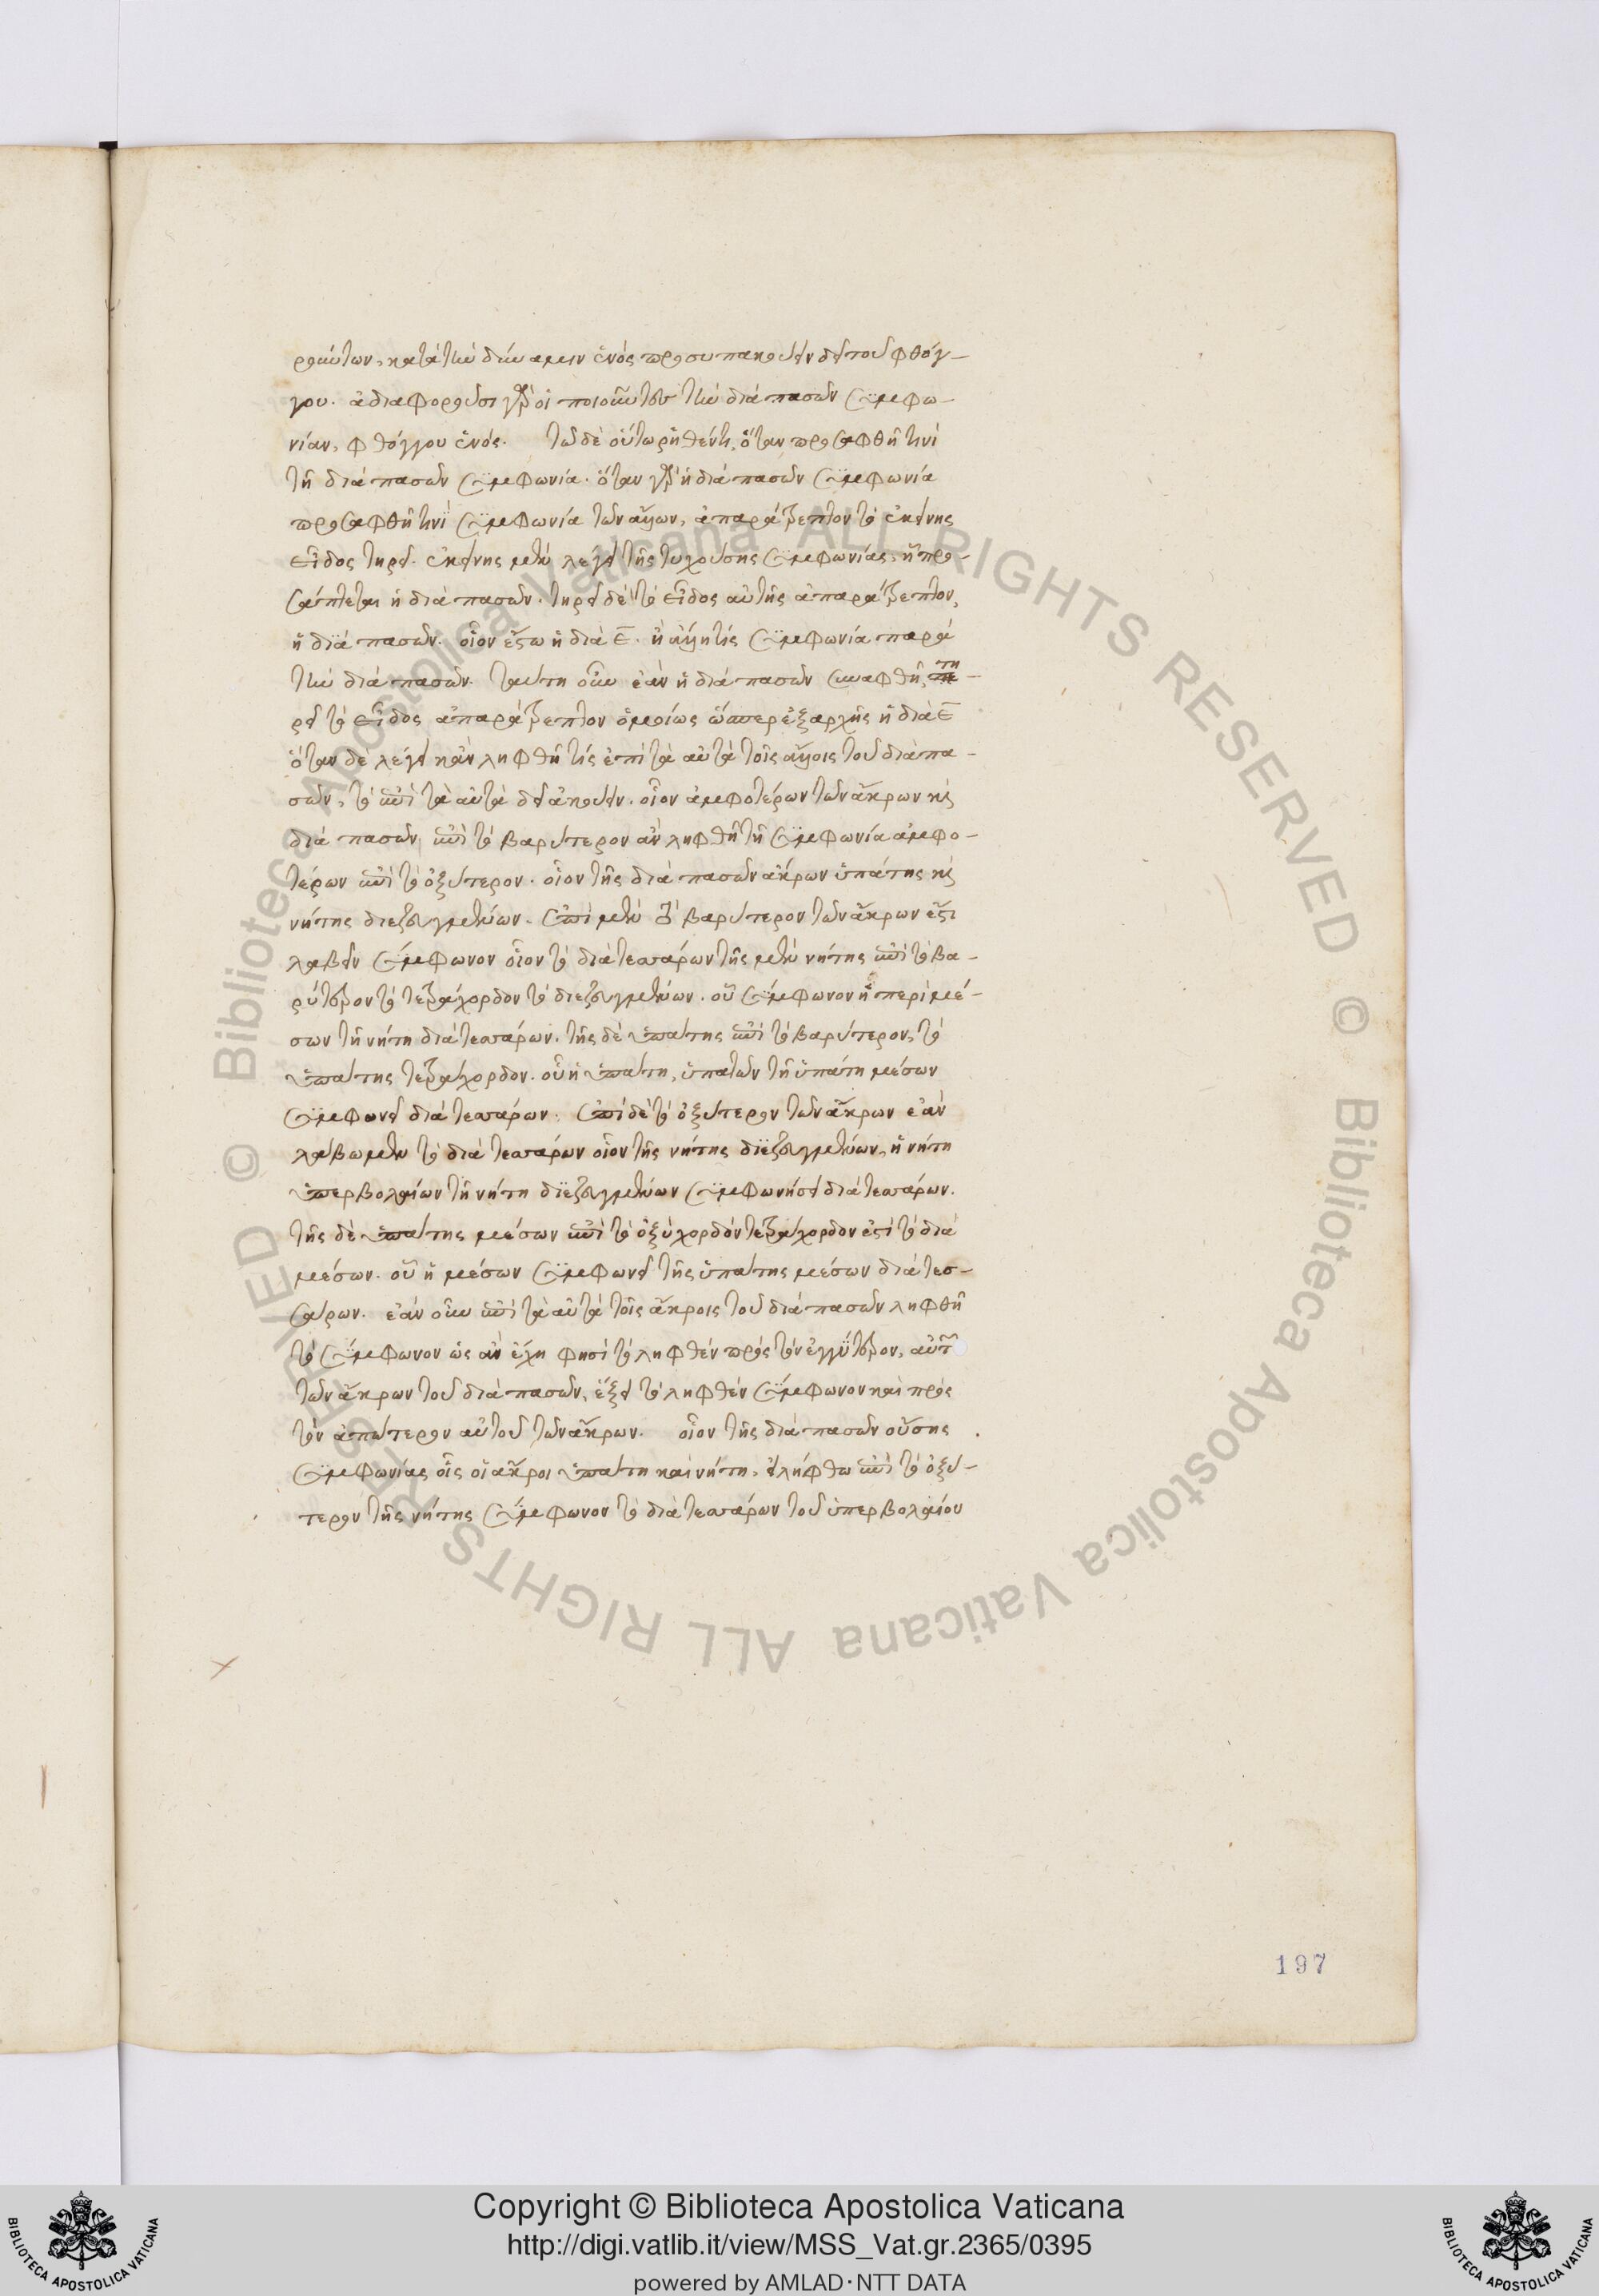 ρούντων, κατὰ τὴν δύναμιν ἑνὸς προσυπακούειν δεῖ τοῦ φθόγ-
γου. ἀδιαφοροῦσι γὰρ οἱ ποιοῦντες τὴν διὰ πασῶν συμφω-
νίαν, φθόγγου ἑνός. τῶ δὲ οὕτω ῥηθέντι, ὅταν προσαφθῆ τινὶ
τῆ διὰ πασῶν συμφωνία. ὅταν γὰρ ἡ διὰ πασῶν συμφωνία
προσαφθῆ τινὶ συμφωνία τῶν ἄλλων, ἀπαράτρεπτον τὸ ἐκείνης
εἶδος τηρεῖ. ἐκείνης μὲν λέγει τῆς τυχούσης συμφωνίας, ἧ προ-
σάπτεται ἡ διὰ πασῶν. τηρεῖ δὲ τὸ εἶδος αὐτῆς ἀπαράτρεπτον,
ἡ διὰ πασῶν. οἷον ἔστω ἡ διὰ ε̄. ἢ ἄλλη τίς συμφωνία παρὰ
τὴν διὰ πασῶν. ταύτη οὖν ἐὰν ἡ διὰ πασῶν συναφθῆ, τη-
ρεῖ τὸ εἶδος ἀπαράτρεπτον ὁμοίως ὥσπερ ἐξαρχῆς ἡ διὰ ε̄
ὅταν δὲ λέγει κἂν ληφθῆ τίς ἐπὶ τὰ αὐτὰ τοῖς ἄλλοις τοῦ διὰ πα-
σῶν, τὸ ἐπὶ τὰ αὐτὰ δεῖ ἀκούειν. οἷον ἀμφοτέρων τῶν ἄκρων τῆς
διὰ πασῶν ἐπὶ τὸ βαρύτερον ἂν ληφθῆ τῆ συμφωνία ἀμφο-
τέρων ἐπὶ τὸ ὀξύτερον. οἷον τῆς διὰ πασῶν ἄκρων ὑπάτης καὶ
νήτης διεζευγμένων. ἐπὶ μὲν τὸ βαρύτερον τῶν ἄκρων ἔστι
λαβεῖν σύμφωνον οἷον τὸ διὰ τεσσάρων τῆς μὲν νήτης ἐπὶ τὸ βα-
ρύτερον τὸ τετράχορδον τὸ διεζευγμένων. οὗ σύμφωνον ἡ περὶ μέ-
σων τῆ νήτη διὰ τεσσάρων. τῆς δὲ ὑπάτης ἐπὶ τὸ βαρύτερον, τὸ
ὑπάτης τετράχορδον. οὗ ἡ ὑπάτη, ὑπατῶν τῆ ὑπάτη μέσων
συμφωνεῖ διὰ τεσσάρων. ἐπὶ δὲ τὸ ὀξύτερον τῶν ἄκρων ἐὰν
λάβωμεν τὸ διὰ τεσσάρων οἷον τῆς νήτης διεζευγμένων, ἡ νήτη
ὑπερβολαίων τῆ νήτη διεζευγμένων συμφωνήσει διὰ τεσσάρων.
τῆς δὲ ὑπάτης μέσων ἐπὶ τὸ ὀξύχορδόν τετράχορδον ἐστὶ τὸ διὰ
μέσων. οὗ ἡ μέσων συμφωνεῖ τῆς ὑπάτης μέσων διὰ τεσ-
σάρων. ἐὰν οὖν ἐπὶ τὰ αὐτὰ τοῖς ἄκροις τοῦ διὰ πασῶν ληφθῆ
τὸ σύμφωνον ὡς ἂν ἔχη φησὶ τὸ ληφθὲν πρὸς τὸν ἐγγύτερον, αὐτῶ
τῶν ἄκρων τοῦ διὰ πασῶν, ἕξει τὸ ληφθὲν σύμφωνον καὶ πρὸς
τὸν ἀπώτερον αὐτοῦ τῶν ἄκρων. οἷον τῆς διὰ πασῶν οὔσης
συμφωνίας οἷς οἱ ἄκροι ὑπάτη καὶ νήτη, εἰλήφθω ἐπὶ τὸ ὀξύ-
τερον τῆς νήτης σύμφωνον τὸ διὰ τεσσάρων τοῦ ὑπερβολαίου
197
© Biblioteca Apostolica Vaticana ALL RIGHTS RESERVED © Biblioteca Apostolica Vaticana ALL RIGHTS RESERVED
Copyright © Biblioteca Apostolica Vaticana
http://digi.vatlib.it/view/MSS_Vat.gr.2365/0395
powered by AMLAD·NTT DATA
BIBLIOTECA APOSTOLICA VATICANA
BIBLIOTECA APOSTOLICA VATICANA